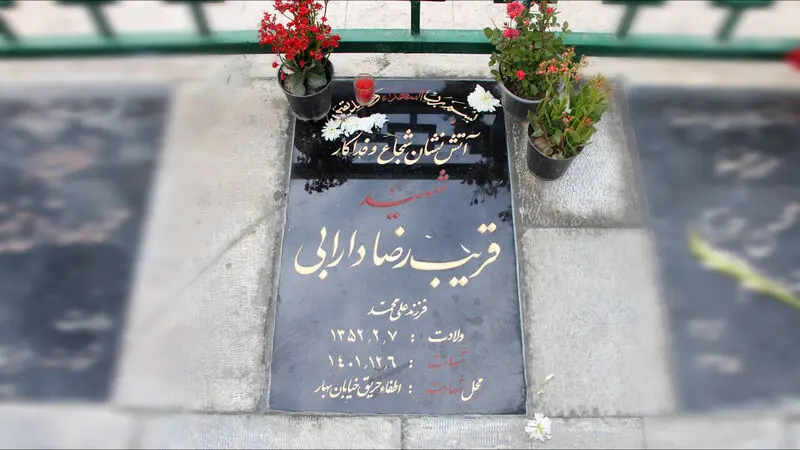 آتش نشان شجاع و فداکار
شهید
قریب رضا دارابی
فرزند علی محمد
ولادت : ۱۳۵۲٫۲٫۷
شهادت : ۱۴۰۱٫۱۲٫۶
محل شهادت : اطفاء حریق خیابان بهار